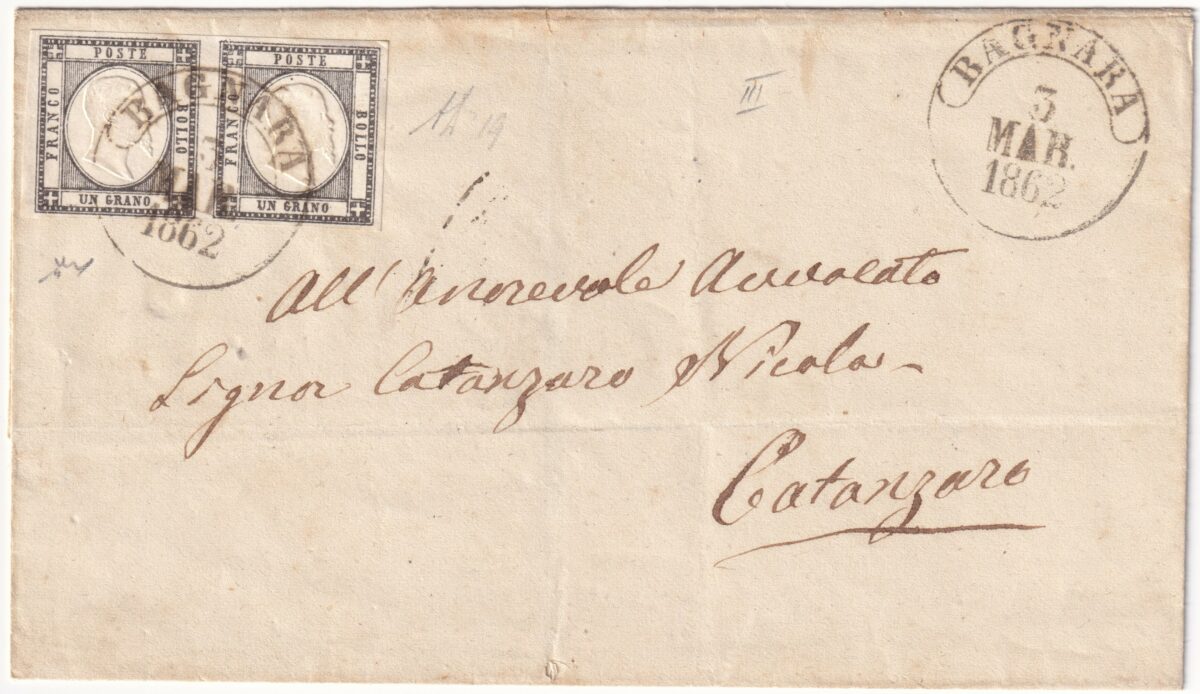 POSTE
FRANCO
BOLLO
UN GRANO
POSTE
FRANCO
BOLLO
UN GRANO
BAGNARA
3
1862
BAGNARA
3
MAR.
1862
III
All'Onorevole Avvocato
Signor Catanzaro Nicola
Catanzaro